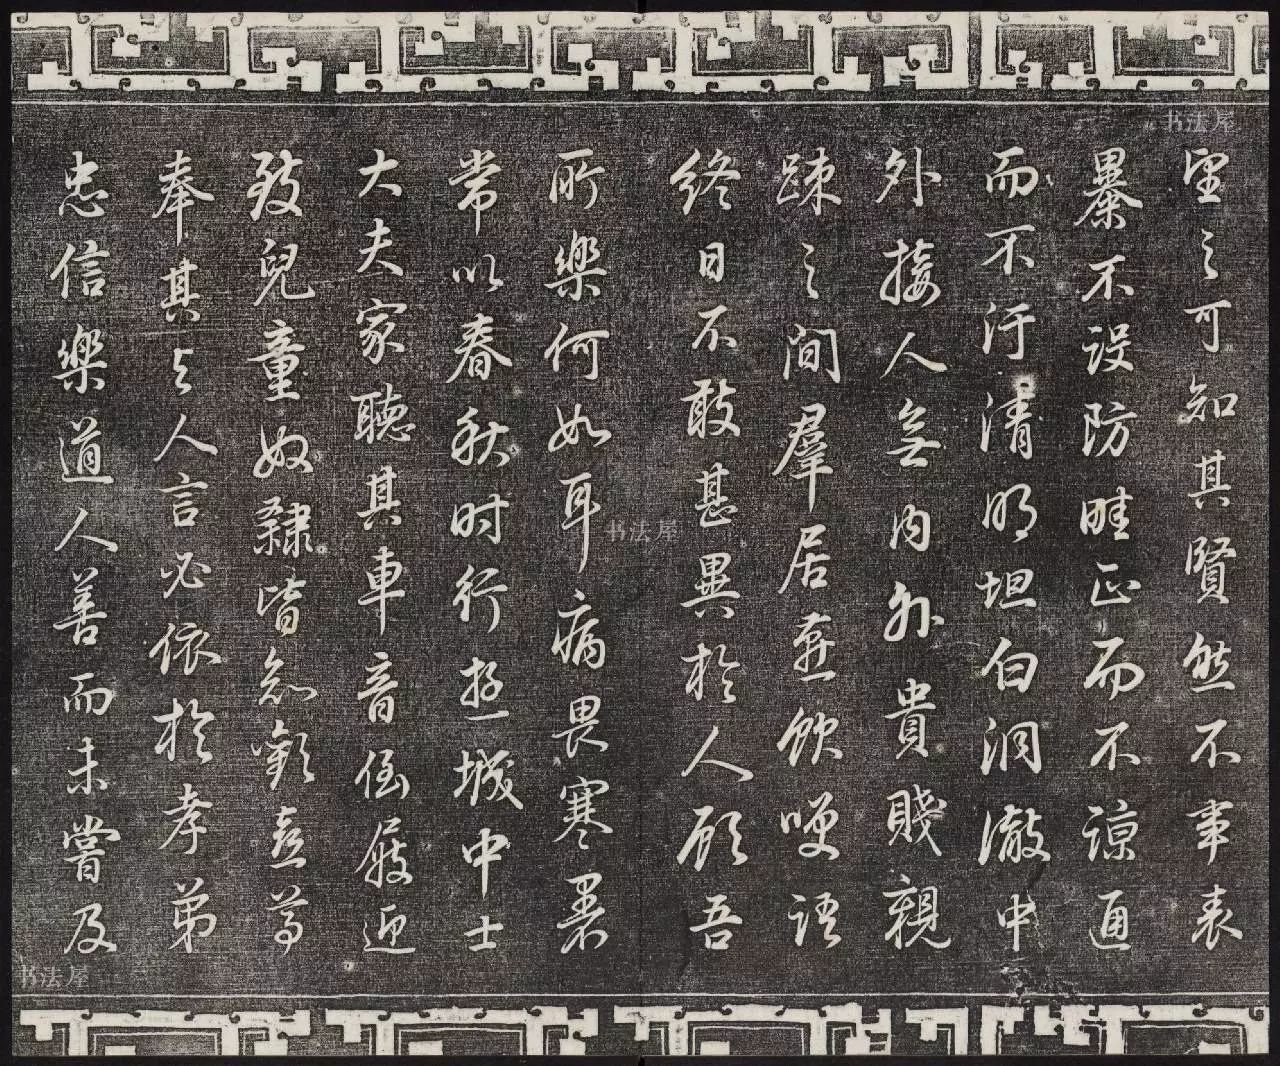 望之可知其賢然不事表
曝不設防畦正而不諒通
而不汙清明坦白洞澈中
外接人無內外貴賤親
疎之間羣居燕飲嘆語
終日不敢甚異於人顧吾
所樂何如耳病畏寒暑
常以春秋時行遊城中士
大夫家聽其車音倒屐迎
致兒童奴隸皆知歡喜尊
奉其与人言必依於孝弟
忠信樂道人善而未嘗及
书法屋
书法屋
书法屋